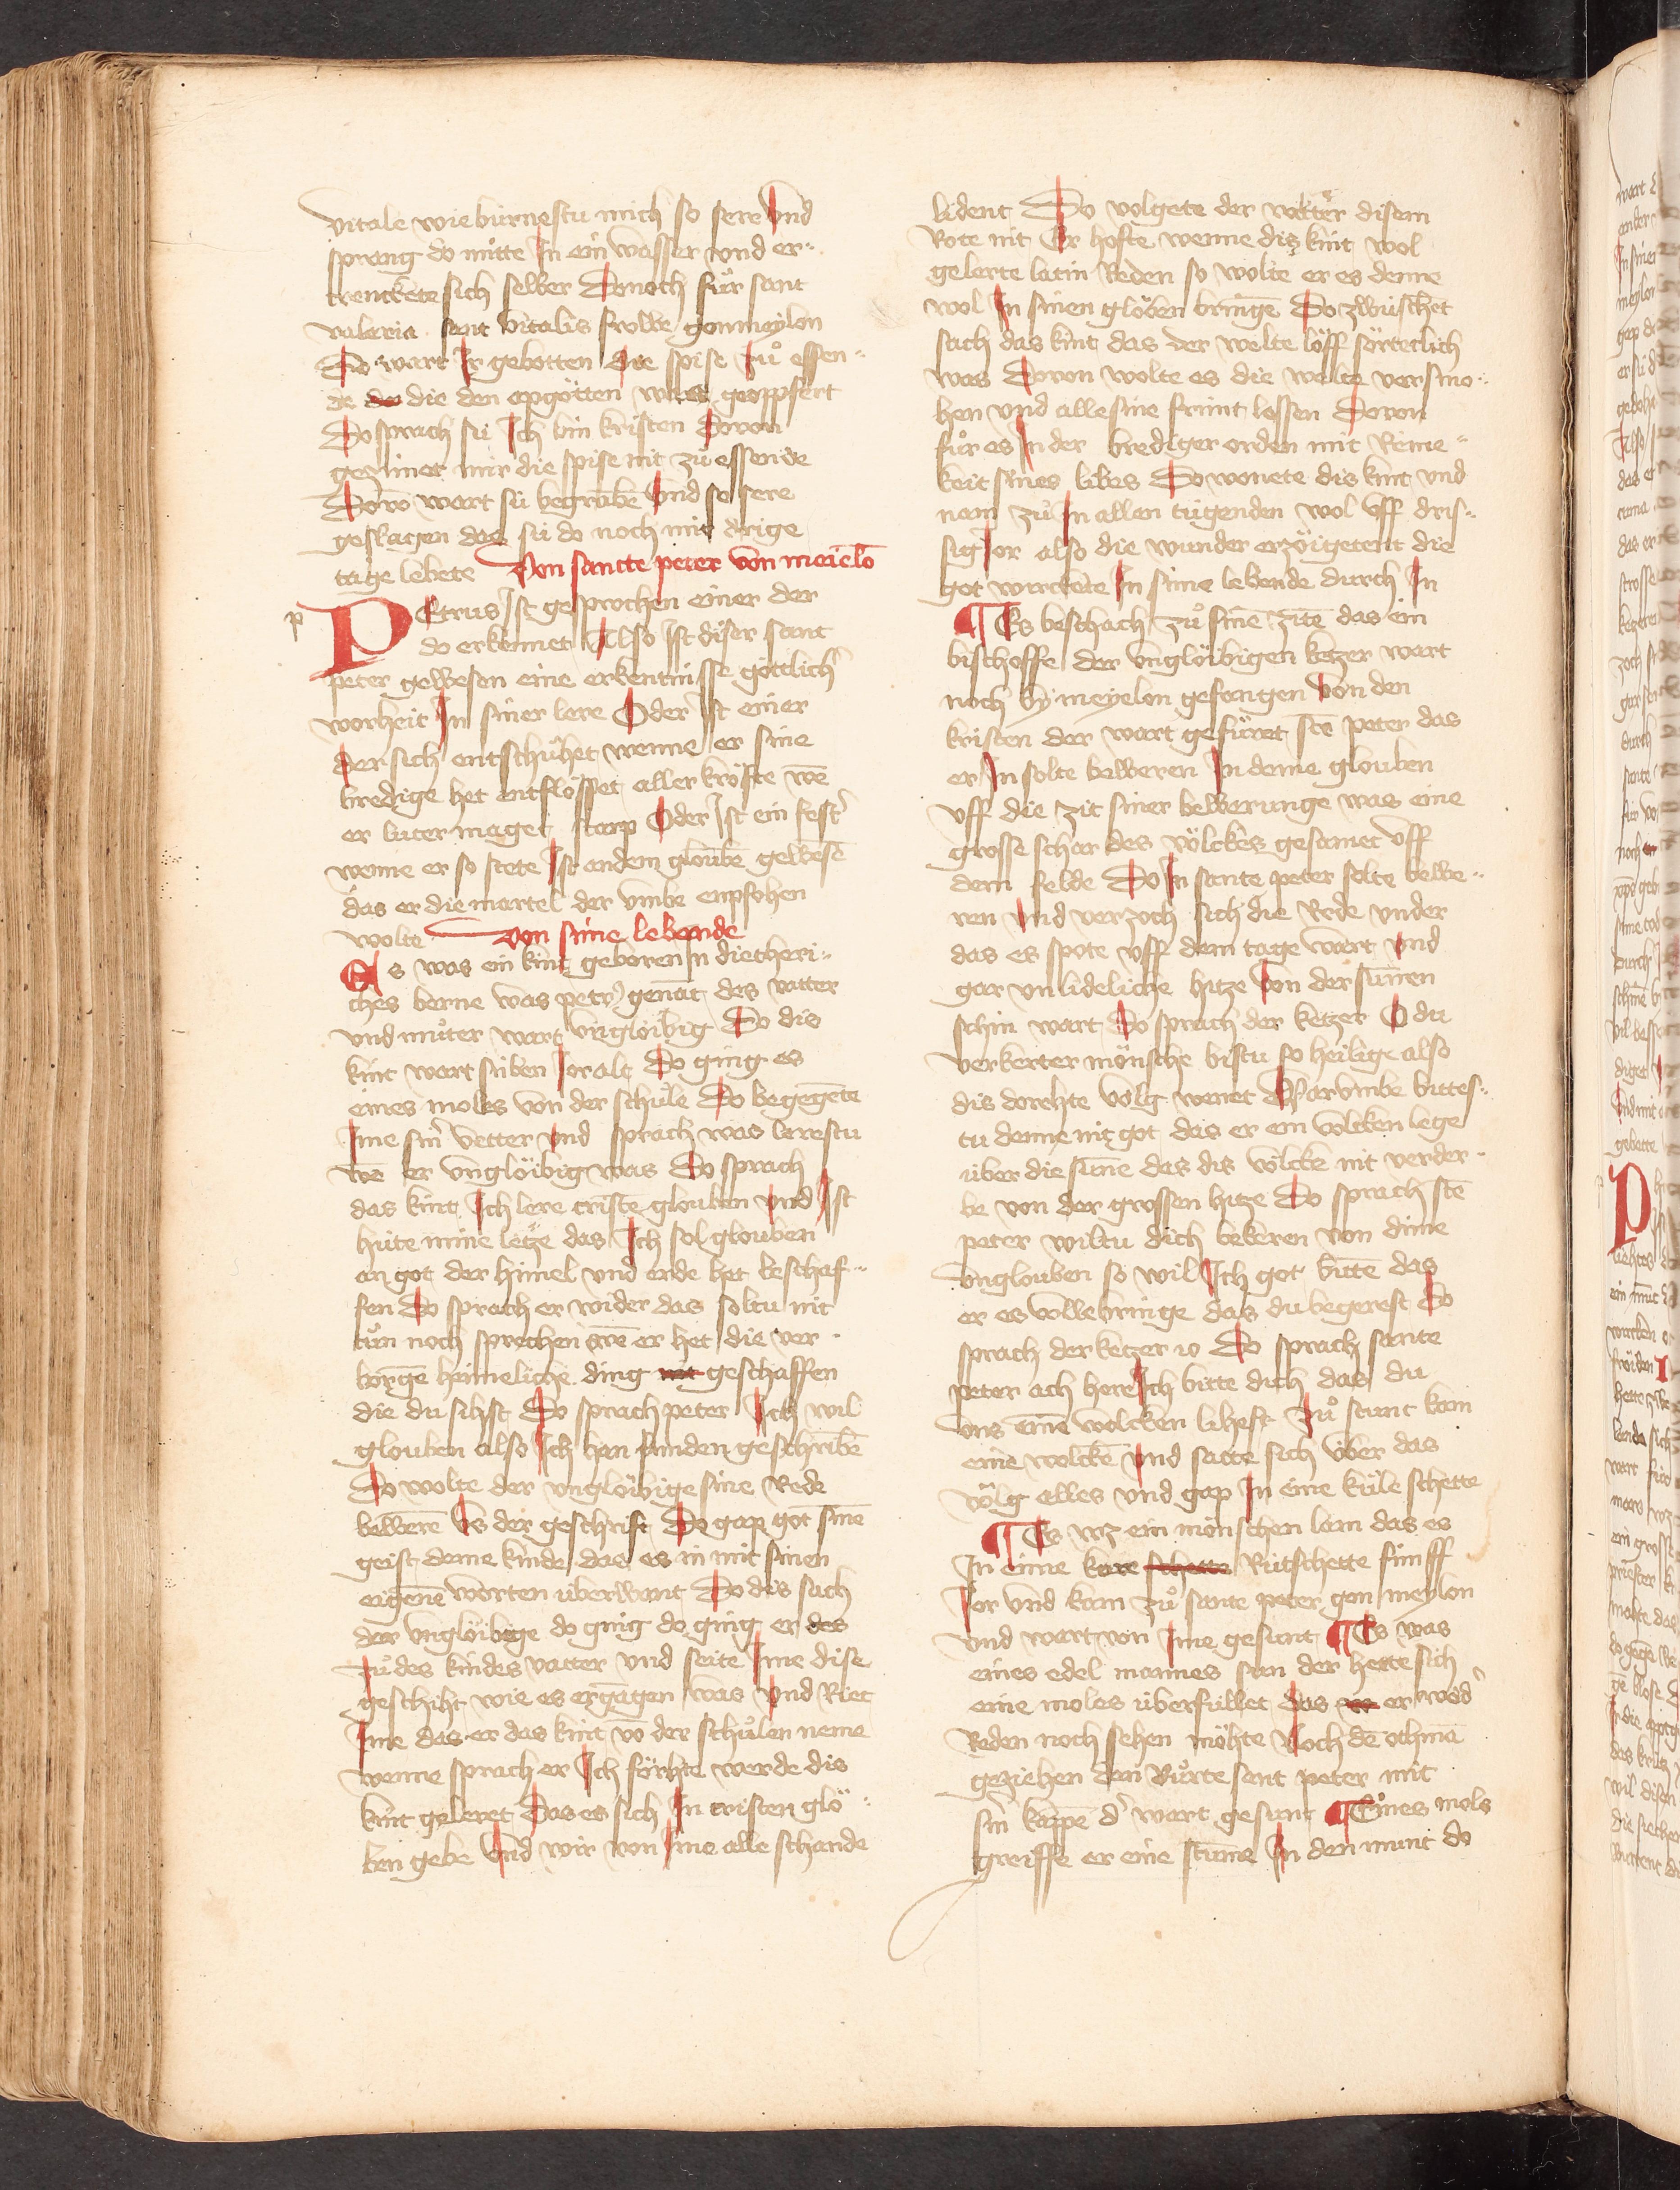 vitale wie bürnestu mich so sere Vnd
sprang do mitte In ein wasser vnd er¬
trenckete sich selber Donoch für sant
valeria sant vitalis frowe gon meylon
Do wart Ir gebotten die spise zů essen¬
de die den apgötten was geoppfert
Do sprach sü Ich bin kristen Dovon
gezimet mir die spise nit zů essende
Dovō wart sü begrabē Vnd so sere
geslagen das sü do noch mit drige
tage lebete Von sancte peter von meielō
p PEtrus Ist gesprochen einer der
do erkennet Also Ist diser sant
peter gewesen eine erkentnisse göttlich'
worheit In siner lere Oder Ist einer
der sich entschühet wenne er sine
bredige het entflösset aller kröfte wē
er luter maget starp Oder Ist ein fest'
wenne er so stete Ist an dem gloubē gewesē
das er die martel der vmbe enpfohen
wolte Von sime lebende
Es was ein kint geboren In dietheri¬
ches berne was petr' genāt des vatter
vnd můter wart vnglöibig Do dis
kint wart süben Ior alt Do ging es
eines moles von der schůle Do begegēte
Ime sin vetter Vnd sprach was lerestu
wē er vnglöibig was Do sprach
das kint Ich lere cristē glouben vnd Ist
hüte mine letze das Ich sol glouben
an got der himel vnd erde het beschaf¬
fen Do sprach er wider das soltu nit
tůn noch sprechen wē er het die ver¬
borgē heimeliche ding nit geschaffen
die du sihst Do sprach peter Ich wil
glouben also Ich han funden geschribē
Do wolte der vnglöibige sine Rede
bewerē Vs der geschrift Do gap got sinē
geist deme kinde das es in mit sinen
eigenē worten überwant Do dis sach
der vnglöibige do ging do ging er des
Zů des kindes vatter vnd seite Ime dise
geschiht wie es ergāgen was Vnd Riet
Ime das er das kint vō der schůlen neme
wenne sprach er Ich förhte werde dis
kint geleret Das es sich In cristen glö¬
ben gebe Vnd wir von Ime alle schande
lident Do volgete der vatter disem
Rote nit Er hofte wenne dis kint wol
gelerte latin Reden so wolte er es denne
wol In sinen glöben bringē Do zwüschet
sach das kint das der welte löff sörterlich
was Dovon wolte es die welte versmo¬
hen vnd alle sine frünt lossen Dovon
fůr es In der brediger orden mit Reine¬
keit sines libes Do wonete dis kint vnd
nam zů In allen tügenden wol vff dris¬
sig Ior also die wunder erzöigetent die
got wirckete In sime lebende durch In
¶ Es beschach zů sinē zitē das ein
bischoffe der vnglöibigen ketzer wart
noch bÿ meyelon gefangen Von den
kristen der wart gefüret stē peter das
er In solte beweren In deme glouben
vff die zit siner bewerunge was eine
grosse schar des völckes gesamet vff
dem felde Do In sante peter solte bewe¬
ren Vnd verzoch sich die Rede vnder
das es spote vff dem tage wart Vnd
gar vnlideliche hitze Von der sunnen
schin wart Do sprach der ketzer O du
verkerter mönsche bistu so heilige also
dis dorehte völg wenet Warvmbe bittes¬
tu denne nit got das er ein wolcken lege
über die sunne das dis völcke nit verder¬
be von der grossen hitze Do sprach stē
peter wiltu dich bekeren von dime
vnglouben so wil Ich got bittē das
er es vollebringe das du begerest Do
sprach der ketzer io Do sprach sante
peter ach here Ich bitte dich das du
vns einē wolcken lihest Zů stunt kam
eine wolckē Vnd satte sich über das
völg alles vnd gap In eine küle schette
¶ Es wz ein mönschen lam das es
In eime kare schette Rütschette fünff
Ior vnd kam zů sante peter gon meylon
vnd wart von Ime gesunt ¶ Es was
eines edel mannes sun der hette sich
eine moles überfüllet das er wed'
Reden noch sehen möhte Noch dē othmē
geziehen den Růrte sant peter mit
sin' kappē d' wart gesunt ¶ Eines mols
greiffe er eine stumē In den munt do